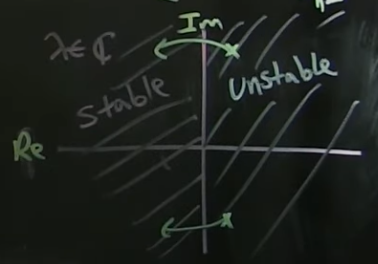 Im
λ ∈ ℂ
Stable
Unstable
Re